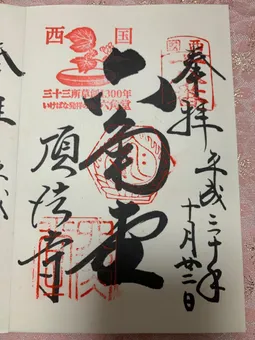 奉拝
平成三十年
十月廿二日
西国
三十三所草創1300年
いけばな発祥の地 六角堂
六角堂
頂法寺